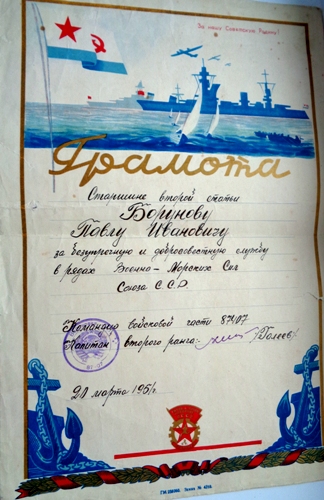 За нашу Советскую Родину!
Грамота
Старшине второй статьи
Борунову
Павлу Ивановичу
за безупречную и добросовестную службу
в рядах Военно-Морских Сил
Союза ССР
Командир войсковой части
Капитан второго ранга:
марта 1951г.